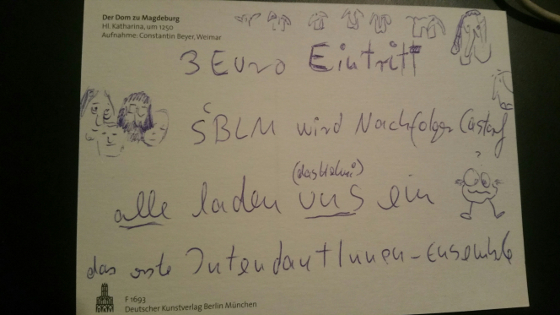 Der Dom zu Magdeburg
Hl. Katharina, um 1250
Aufnahme: Constantin Beyer, Weimar
3 Euro Eintritt
SBLM wird Nachfolger Castorf
?
alle laden uns ein
das erste IntendantInnen-Ensemble
F 1693
Deutscher Kunstverlag Berlin München